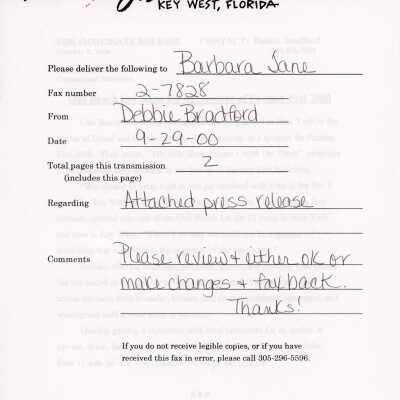 KEY WEST, FLORIDA
Please deliver the following to Barbara Jane
Fax number 2-7828
From Debbie Bradford
Date 9-29-00
Total pages this transmission 2
(includes this page)
Regarding Attached press release
Comments Please review + either OK or
make changes + fax back.
Thanks!
If you do not receive legible copies, or if you have
received this fax in error, please call 305-296-5596.